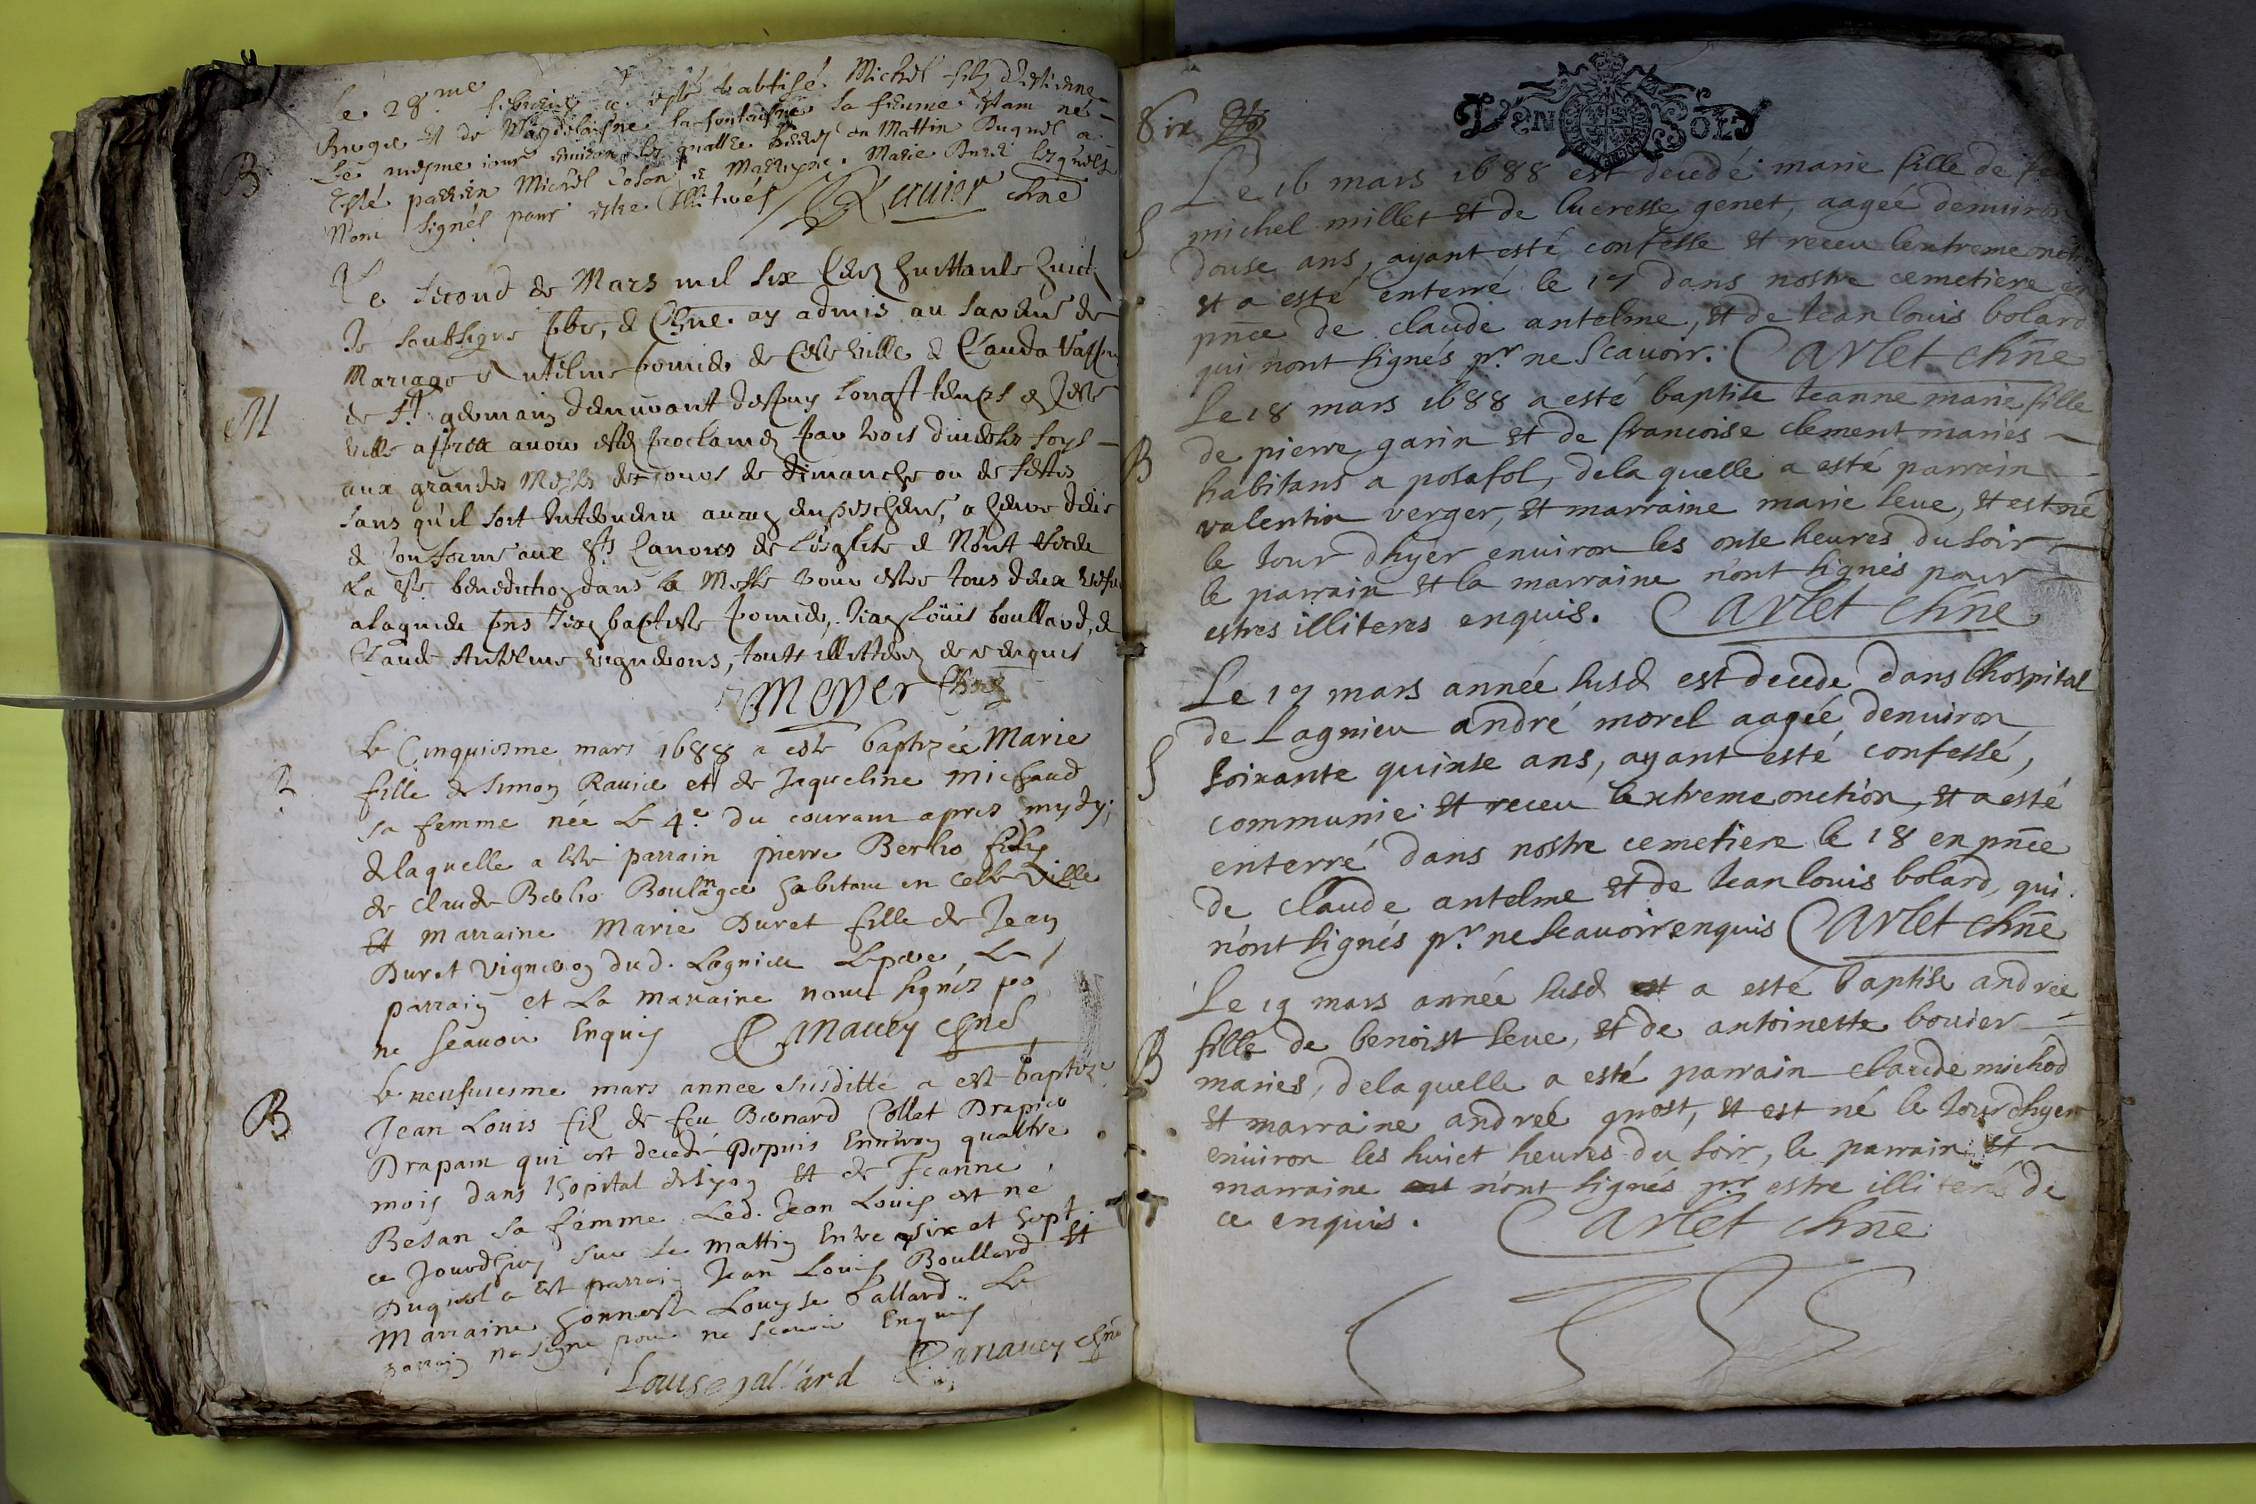 Le 28.me febvrier a esté baptisé Michel filz d'Estienne
Bruge et de Magdelaine la fontaine sa femme estant né
le mesme jour environ les quattre heures du Mattin Duquel a
esté parrin Michel Coson, et Marrayne Marie Buret lesquels
n'ont signés pour estre illitrés Ravier chne
B
Le second de Mars mil six Centz huittante huict
Je soubsigne pbre, & Chne. ay admis au Sacrement de
Mariage Antelme pomid de Ceste ville & Clauda
de St germain demeurant despuis longt temps en ceste
ville apres avoir estés proclamés par trois diverses foys
aux grandes Messes des jours de dimanche ou de festes
sans qu'il soit intervenu aucun empeschement,
& Conforme aux Sts Canons de L'esglise & N'ont
La ste benediction dans la Messe pour estre tous deux
a laquelle pns Jean baptiste pomid, Jean Loüis boullard, &
Claude Antelme vignerons, touts illitteres de ce enquis
M
Moyer Chne
Le Cinquiesme mars 1688 a esté baptizée Marie
fille de Simon Ravier et de Jaqueline Michaud
sa femme née le 4.e du courant apres mydy;
de laquelle a esté parrain pierre Berlio filz
de Claude Berlio Boulanger habitant en ceste ville
Et marraine Marie Duret fille de Jean
Duret Vigneron dud. Lagnieu Le pere, Le
parrain et La marraine n'ont signés po
ne scavoir Enquis Canauey chne
B
Le neufviesme mars annee Susditte a esté baptizé
Jean Louis filz de feu Bernard Collet Drapier
Drapant qui est decedé Depuis Environ quattre
mois dans l'hopital de Lyon Et de Jeanne
Besan sa femme. Led. Jean Louis est né
ce Jourdhuy sur le mattin Entre six et sept
Duquel a esté parrain Jean Louis Boullard Et
Marraine honneste Louyse Pallard. Le
parrain n'a signé pour ne scavoir Enquis
B
Louise pallard Canauey chne
Six
DEN SOLS
Le 16 mars 1688 est decedé marie fille de
michel millet et de lucresse genet, aageé denuiron
douse ans, ayant esté confesse et receu lextreme
et a esté enterré le 17 dans nostre cemetiere en
pnce de claude antelme, et de Jean louis bolard
qui n'ont signés pr. ne scauoir. Carlet chne
S
Le 18 mars 1688 a esté baptise Jeanne marie fille
de pierre garin et de francoise clement mariés
habitans a posafol, de la quelle a esté parrain
valentin verger, et marraine marie seue, et est né
le Jour dhyer enuiron les onse heures du soir
le parrain et la marraine n'ont signés pour
estres illiteres enquis. Carlet chne
B
Le 17 mars année susd est decede dans lhospital
de Lagnieu andré morel aageé denuiron
soixante quinse ans, ayant esté confessé,
communié et receu lextreme onction, et a esté
enterré dans nostre cemetiere le 18 en pnce
de claude antelme et de Jean louis bolard, qui
n'ont signés pr. ne scauoir enquis Carlet chne
S
Le 19 mars année susd est a esté baptise andrée
fille de benoist seue, et de antoinette bouier
mariés, de la quelle a esté parrain claude michod
et marraine andreé grost, et est né le Jour dhyer
enuiron les huict heures du soir, le parrain et
marraine ont n'ont signés pr estre illiteré de
ce enquis. Carlet chne
B